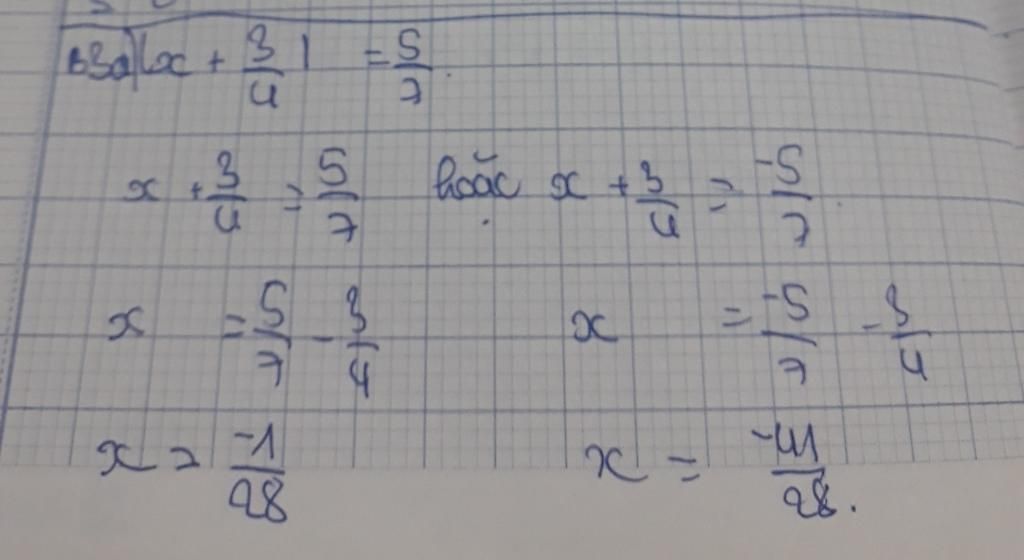 B3a) |x + 3/4| = 5/7
x + 3/4 = 5/7 hoặc x + 3/4 = -5/7
x = 5/7 - 3/4 x = -5/7 - 3/4
x = -1/28 x = -41/28.